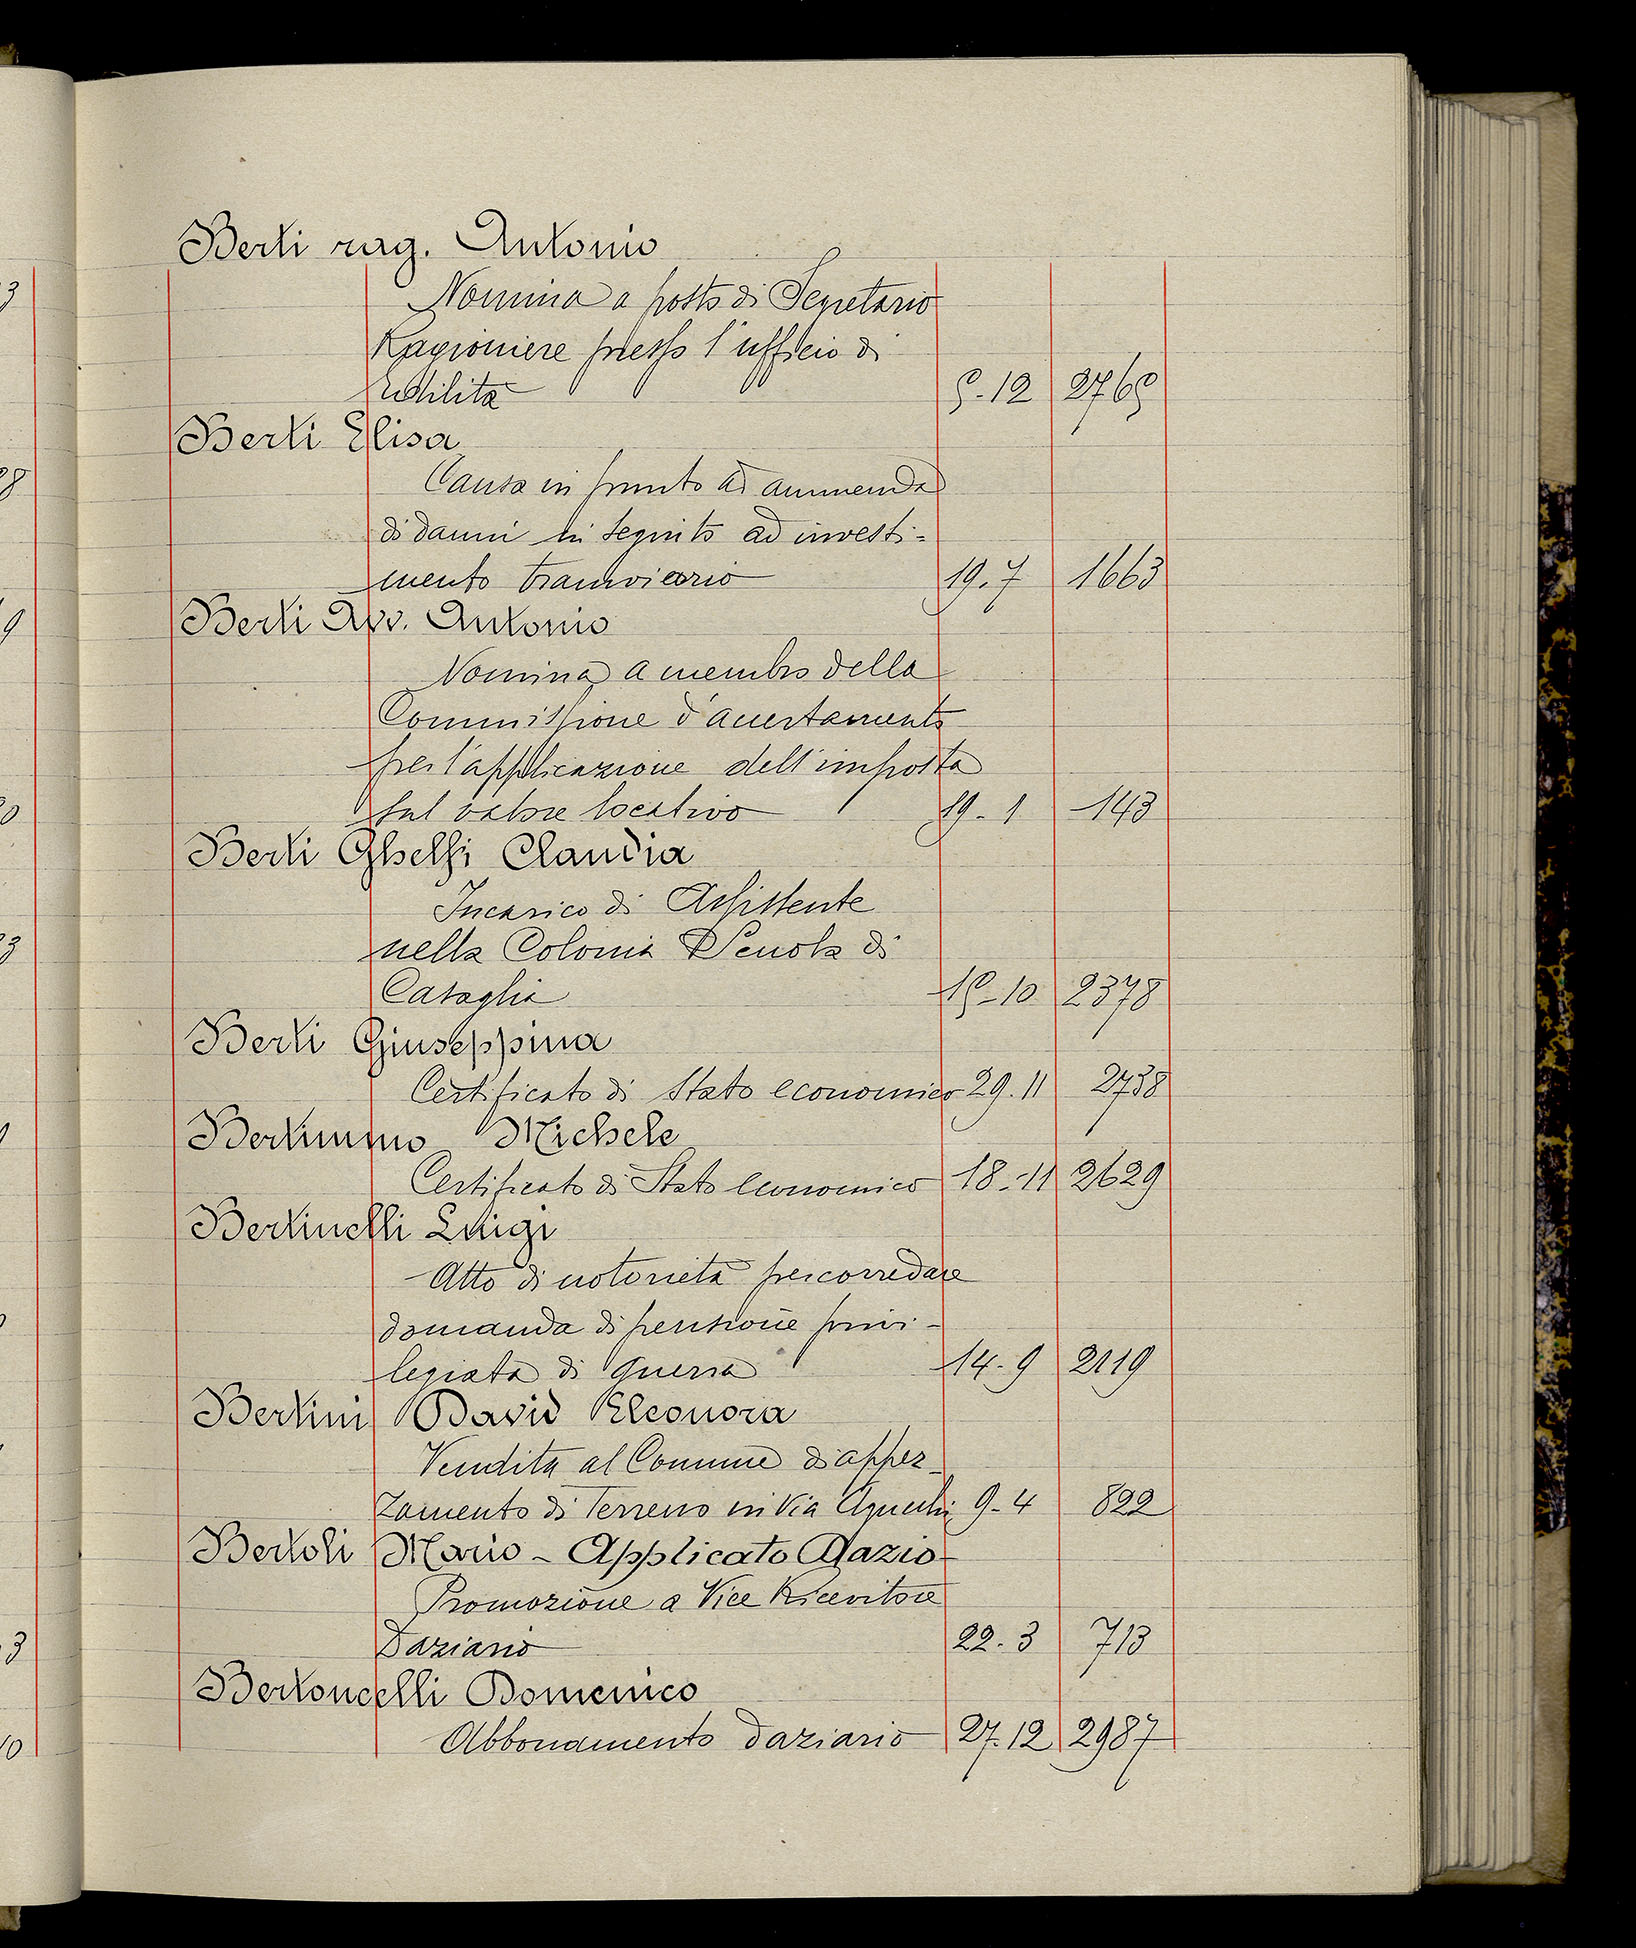 Berti rag. Antonio
Nomina a posto di Segretario
Ragioniere presso l'ufficio di
Edilità 5-12 2765
Berti Elisa
Causa in punto ad ammenda
di danni in seguito ad investi-
mento tramviario 19.7 1663
Berti Avv. Antonio
Nomina a membro della
Commissione d'accertamento
per l'applicazione dell'imposta
sul valore locativo 19-1 143
Berti Ghelfi Claudia
Incarico di Assistente
nella Colonia Scuola di
Casaglia 15-10 2378
Berti Giuseppina
Certificato di Stato economico 29.11 2738
Bertimmo Michele
Certificato di Stato economico 18-11 2629
Bertinelli Luigi
Atto di notorietà per corredare
domanda di pensione privi-
legiata di guerra 14-9 2119
Bertini David Eleonora
Vendita al Comune di appez-
zamento di Terreno in Via Agucchi 9-4 822
Bertoli Mario - Applicato Dazio-
Promozione a Vice Ricevitore
Daziario 22.3 713
Bertoncelli Domenico
Abbonamento daziario 27.12 2987
3
9
0
3
3
10